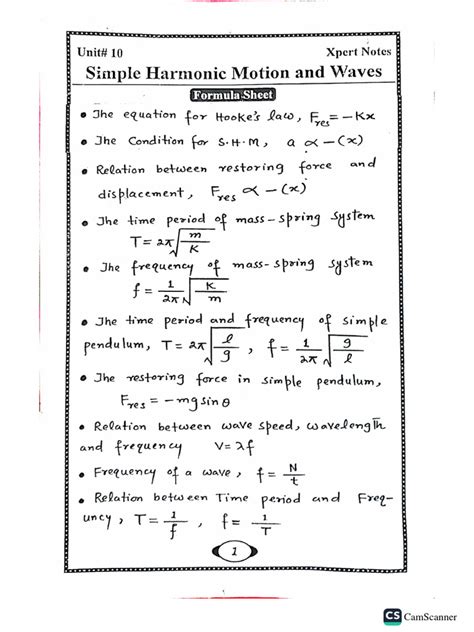 Unit# 10 Xpert Notes
Simple Harmonic Motion and Waves
Formula Sheet
• The equation for Hooke's law, F_res = -Kx
• The Condition for S.H.M, a ∝ -(x)
• Relation between restoring force and
displacement, F_res ∝ -(x)
• The time period of mass-spring system
T = 2π√(m/K)
• The frequency of mass-spring system
f = 1/2π √(K/m)
• The time period and frequency of simple
pendulum, T = 2π√(l/g), f = 1/2π √(g/l)
• The restoring force in simple pendulum,
F_res = -mg sinθ
• Relation between wave speed, wavelength
and frequency V=λf
• Frequency of a wave, f = N/t
• Relation between Time period and Freq-
uncy, T = 1/f, f = 1/T
1
CS CamScanner